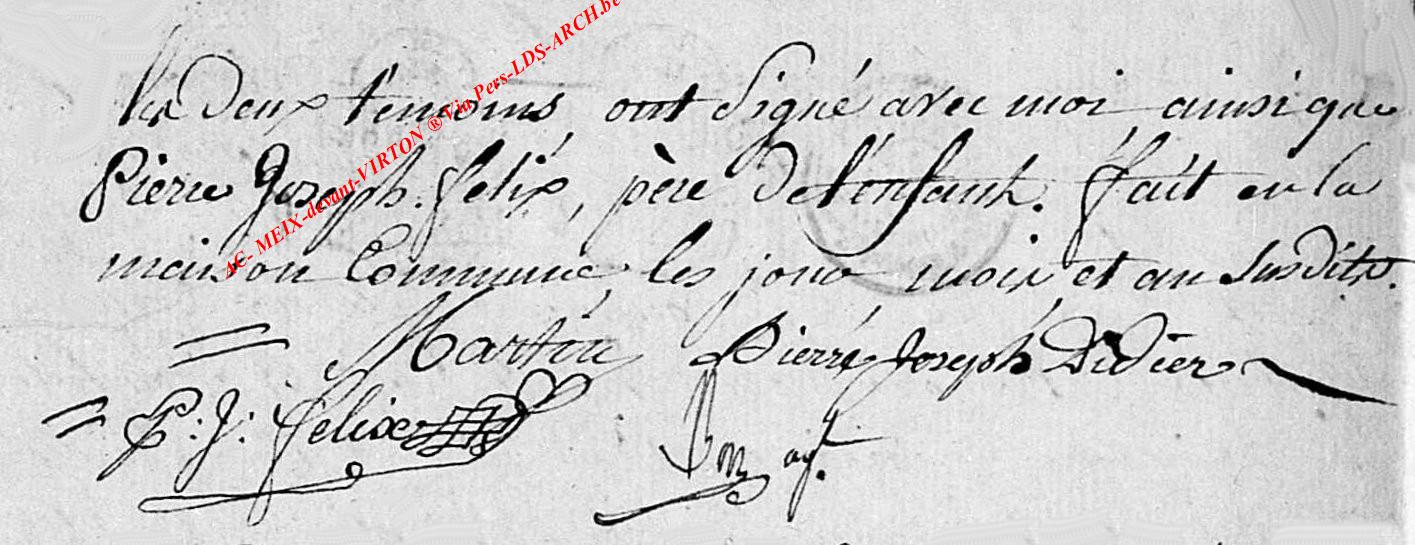 AC- MEIX-devant-VIRTON ® Via Pers-LDS-ARCH.be
les deux témoins, ont Signé avec moi ainsi que
Pierre Joseph felix, père de l'enfant. fait en la
maison Commune, les jour mois et an Susdits.
= Martin Pierre Joseph Didier
= P: J: felix